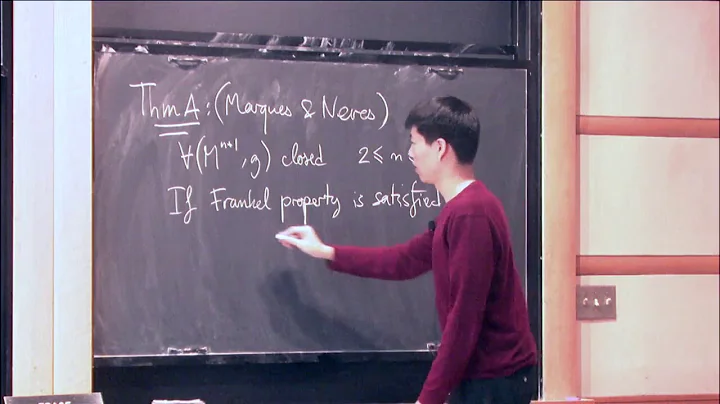 Thm A: (Marques & Neves)
∀(Mⁿ⁺¹, g) closed 2 ≤ n
If Frankel property is satisfied